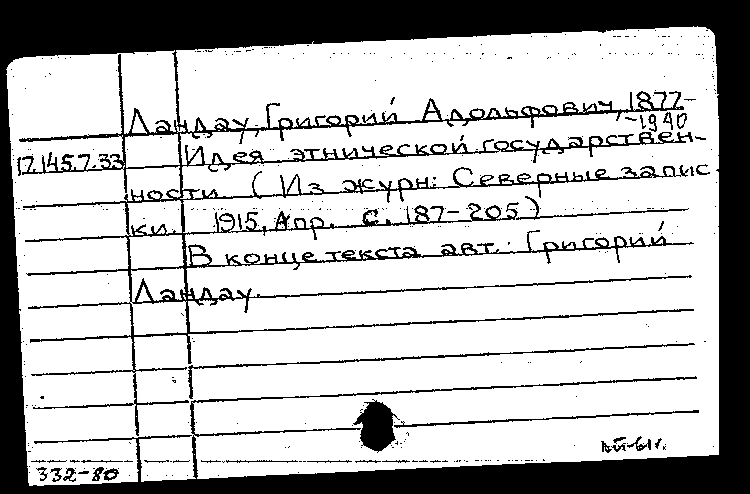 Ландау, Григорий Адольфович, 1877-
-1940
17.145.7.33 Идея этнической государствен-
ности. (Из журн: Северные запис-
ки. 1915, Апр. с. 187-205)
В конце текста авт.: Григорий
Ландау.
332-80